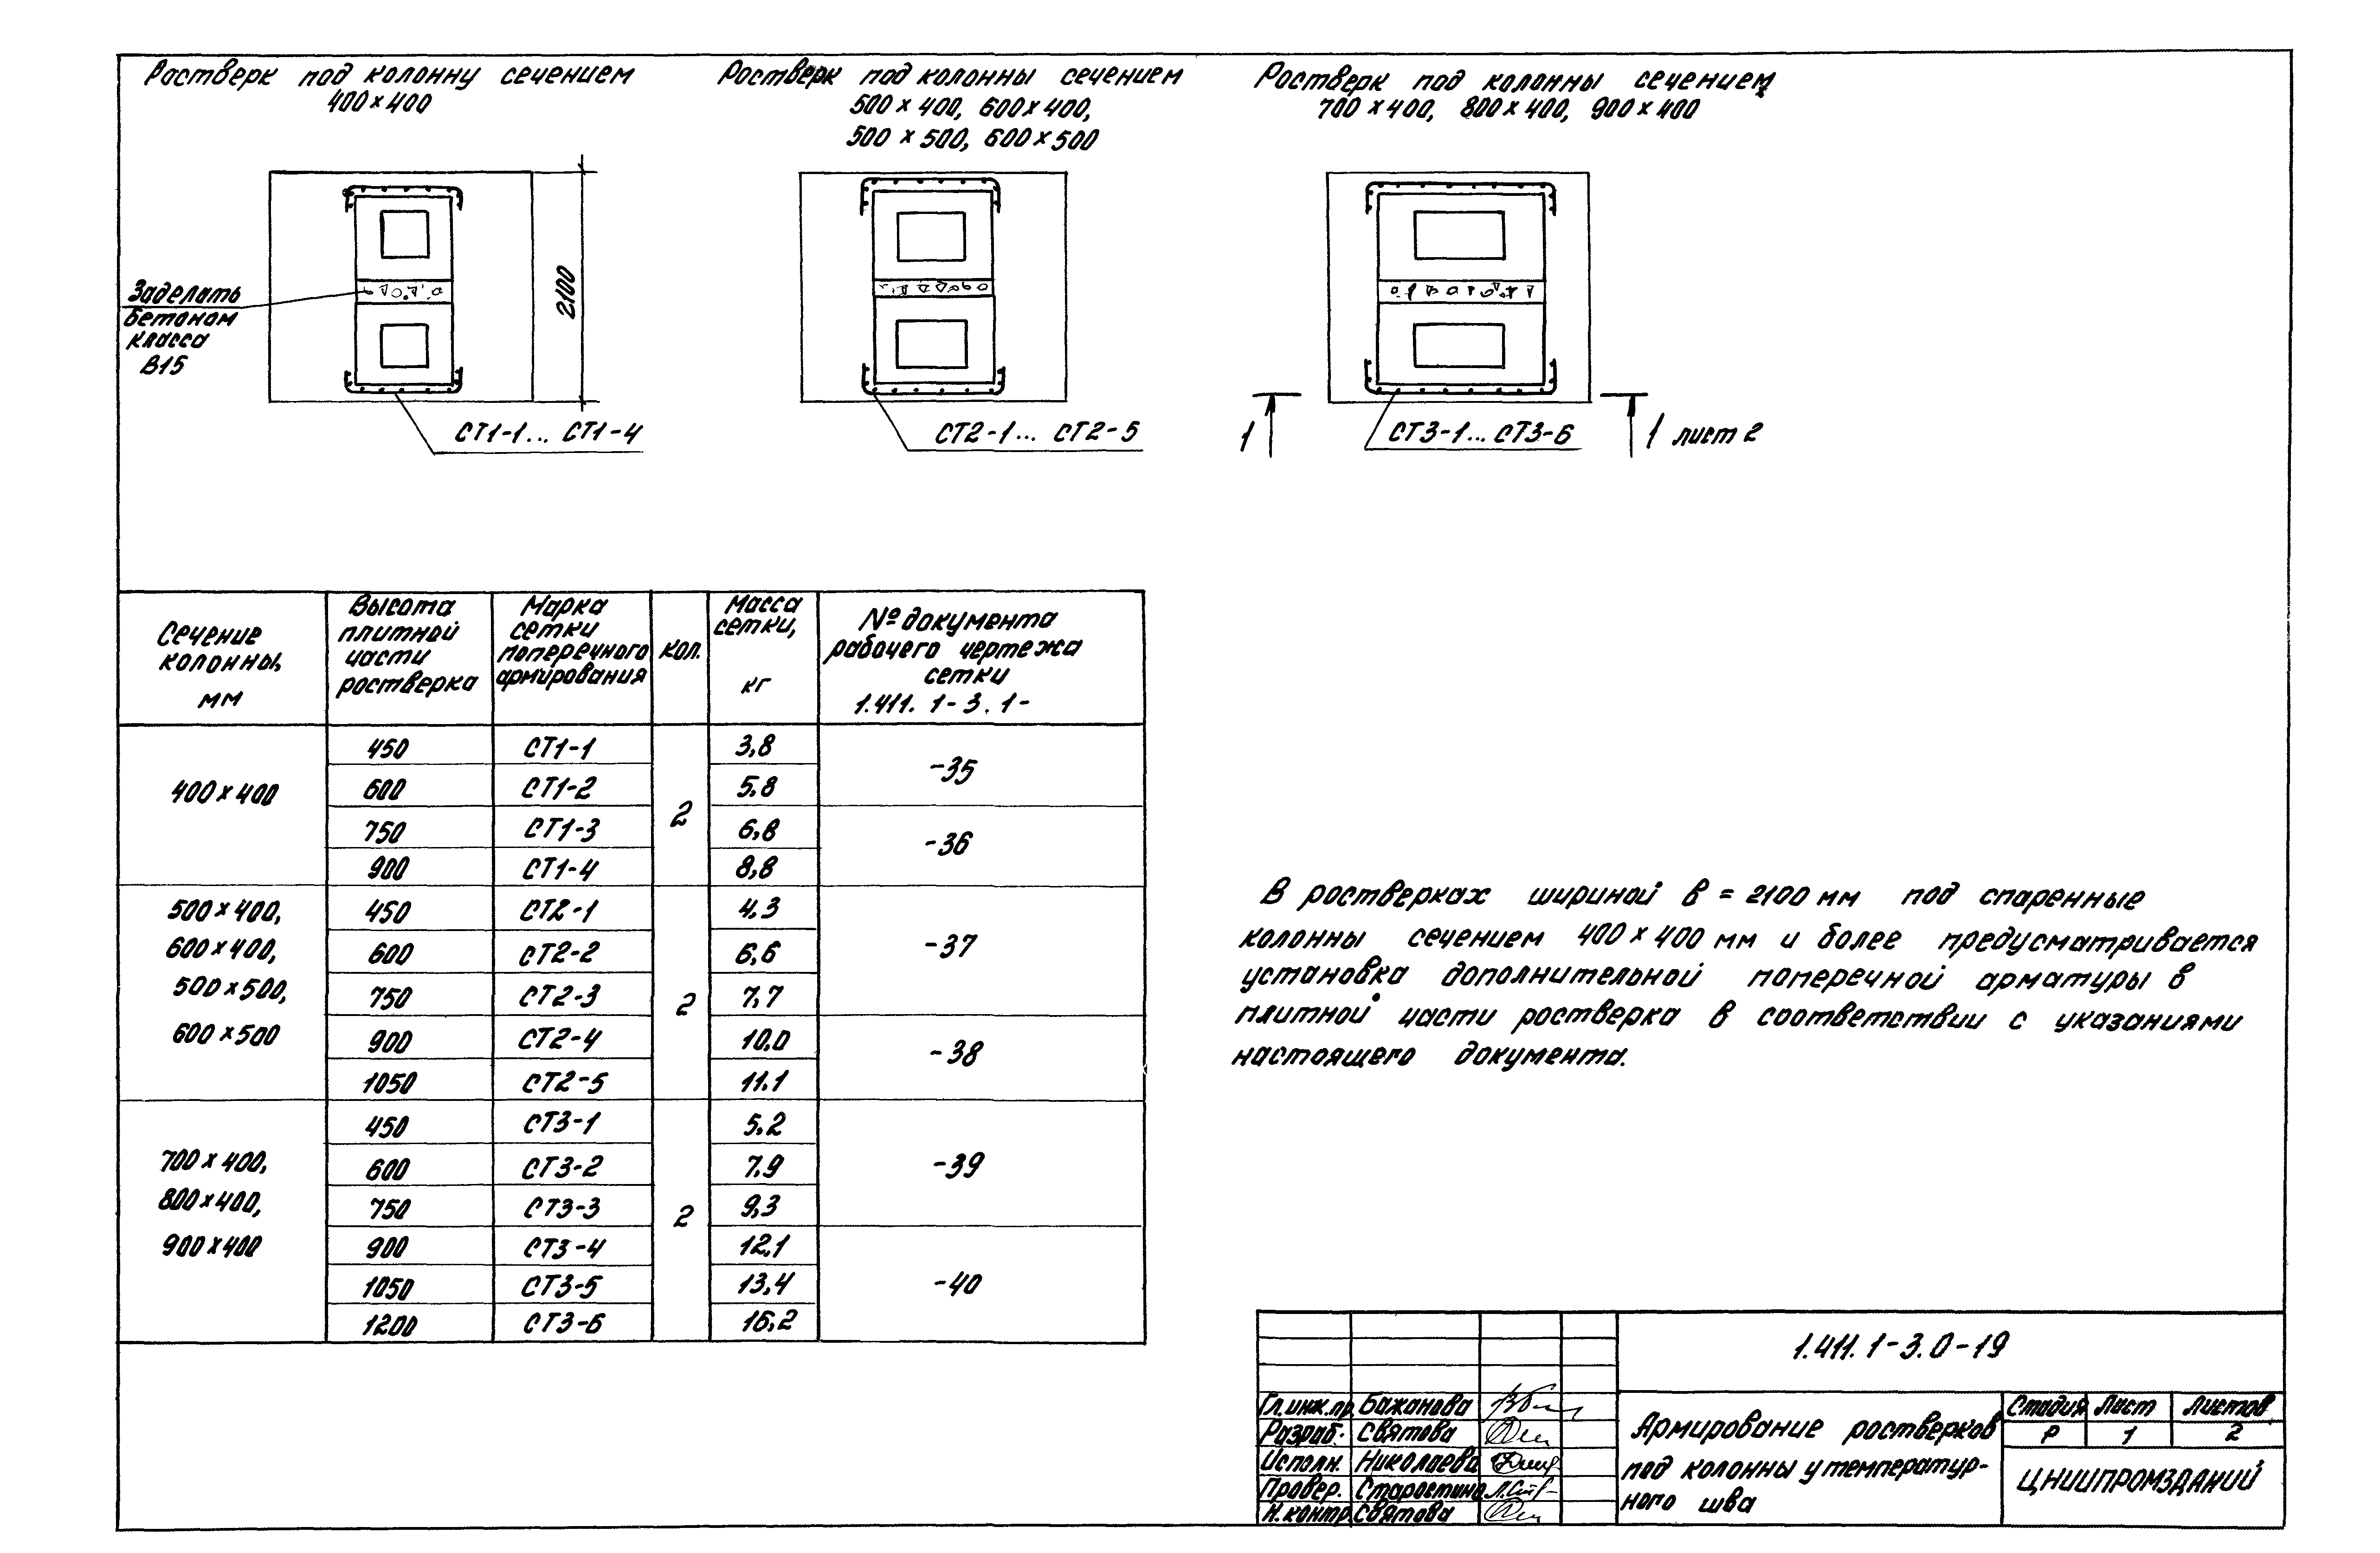 Ростверк под колонну сечением
400×400
Ростверк под колонны сечением
500×400, 600×400,
500×500, 600×500
Ростверк под колонны сечением
700×400, 800×400, 900×400
Заделать
бетоном
класса
В15
2100
СТ1-1... СТ1-4
СТ2-1... СТ2-5
1
СТ3-1... СТ3-6
1 лист 2
Сечение
колонны,
мм
Высота
плитной
части
ростверка
Марка
сетки
поперечного
армирования
кол.
Масса
сетки,
кг
№ документа
рабочего чертежа
сетки
1.411.1-3.1-
400×400
450 СТ1-1 3,8
600 СТ1-2 5,8
-35
2
750 СТ1-3 6,8
900 СТ1-4 8,8
-36
500×400,
600×400,
500×500,
600×500
450 СТ2-1 4,3
600 СТ2-2 6,6
750 СТ2-3 7,7
-37
2
900 СТ2-4 10,0
1050 СТ2-5 11,1
-38
700×400,
800×400,
900×400
450 СТ3-1 5,2
600 СТ3-2 7,9
750 СТ3-3 9,3
-39
2
900 СТ3-4 12,1
1050 СТ3-5 13,4
1200 СТ3-6 16,2
-40
В ростверках шириной в = 2100 мм под спаренные
колонны сечением 400×400 мм и более предусматривается
установка дополнительной поперечной арматуры в
плитной части ростверка в соответствии с указаниями
настоящего документа.
1.411.1-3.0-19
Гл.инж.пр. Бажанова
Разраб. Святова
Исполн. Николаева
Провер. Старостина
Н.контр. Святова
Армирование ростверков
под колонны у температур-
ного шва
Стадия Лист Листов
Р 1 2
ЦНИИПРОМЗДАНИЙ